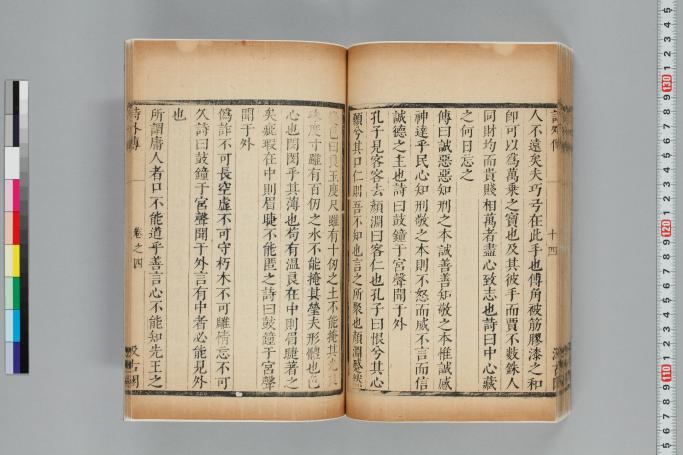 人不遠矣夫巧弓在此手也傅角被筋膠漆之和
卽可以爲萬乘之寶也及其彼手而賈不數銖人
同財均而貴賤相萬者盡心致志也詩曰中心藏
之何日忘之
傳曰誠惡惡知刑之本誠善善知敬之本惟誠感
神達乎民心知刑敬之本則不怒而威不言而信
誠德之主也詩曰鼓鐘于宮聲聞于外
孔子見客客去顏淵曰客仁也孔子曰恨兮其心
顙兮其口仁則吾不知也言之所聚也顏淵蹙然
變色曰良玉度尺雖有十仞之土不能掩其光
珠度寸雖有百仞之水不能掩其瑩夫形體也色
心也閔閔乎其薄也苟有溫良在中則眉睫著之
矣疵瑕在中則眉睫不能匿之詩曰鼓鐘于宮聲
聞于外
僞詐不可長空虛不可守朽木不可雕情忘不可
久詩曰鼓鐘于宮聲聞于外言有中者必能見外
也
所謂庸人者口不能道乎善言心不能知先王之
詩外傳
卷之四
十四
汲古閣